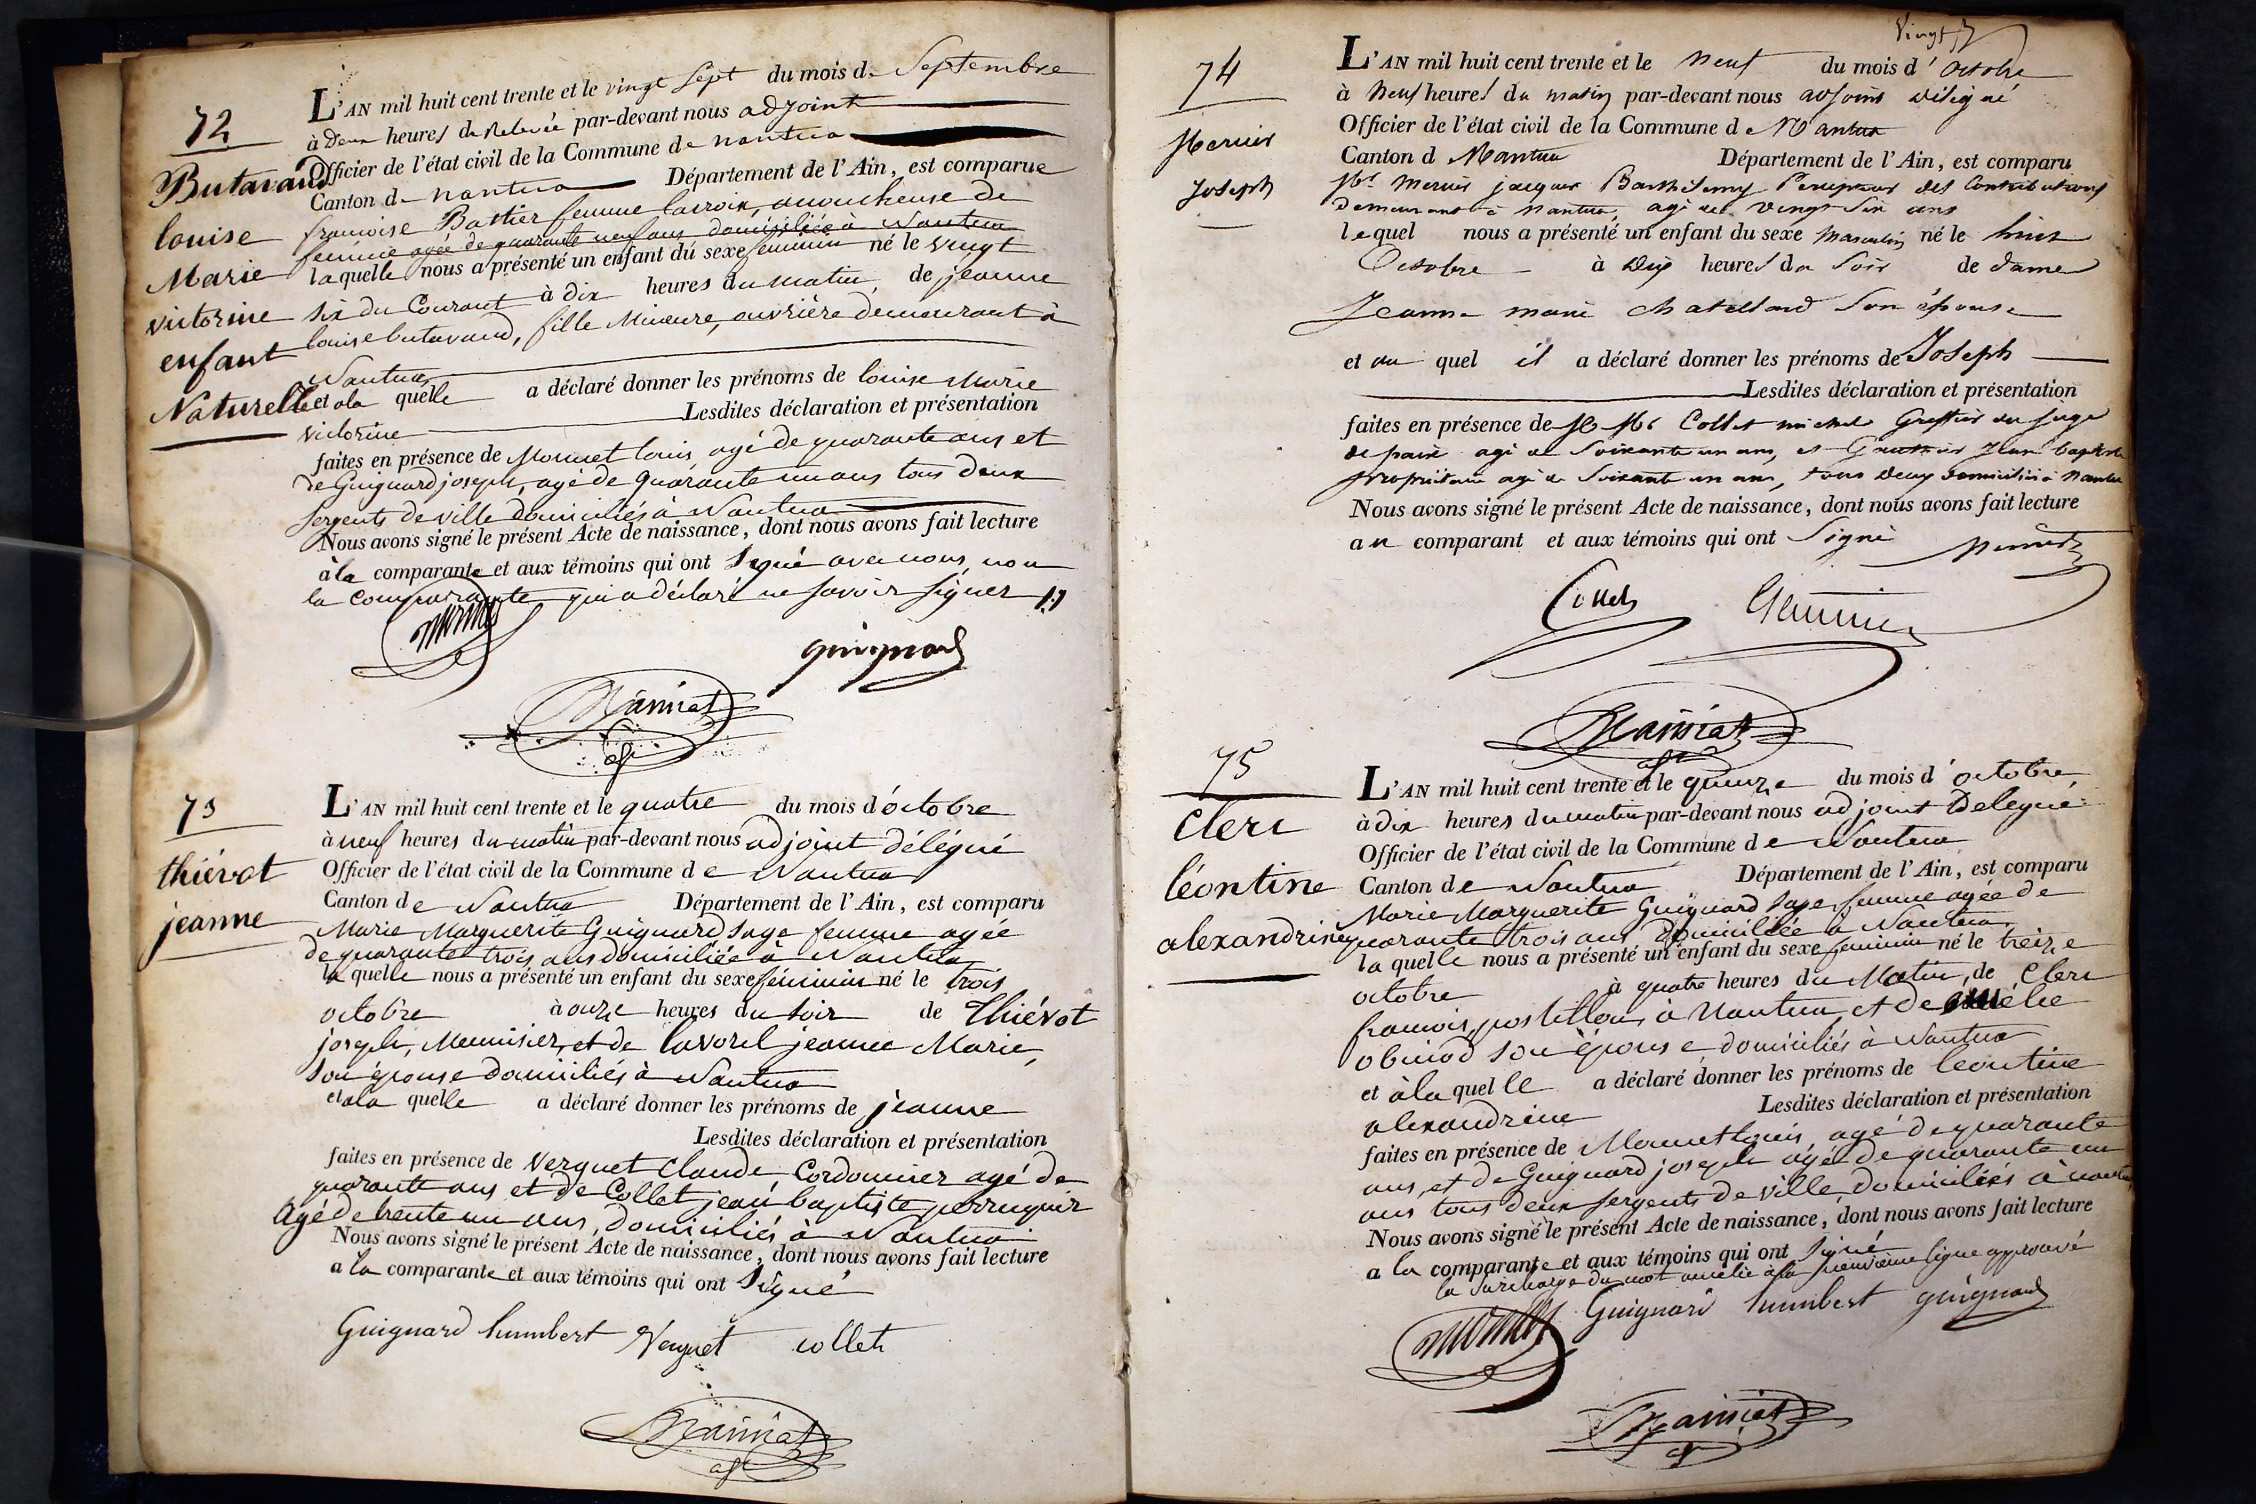 72
Butavand
louise
Marie
victorine
enfant
Naturelle
L'AN mil huit cent trente et le vingt sept du mois de Septembre
à deux heures de Relevée par-devant nous adjoint
Officier de l'état civil de la Commune de nantua
Canton de nantua Département de l'Ain, est comparue
francoise Bastier femme lacroix, accoucheuse de
femme agée de quarante neuf ans domiciliée à Nantua
laquelle nous a présenté un enfant du sexe feminin né le vingt
six du Courant à dix heures du matin, de jeanne
louise butavand, fille Mineure, ouvrière demeurant à
Nantua
et ala quelle a déclaré donner les prénoms de louise Marie
victorine Lesdites déclaration et présentation
faites en présence de Monnet louis agé de quarante ans et
de Guignard joseph, agé de quarante un ans tous deux
sergents de ville domiciliés à Nantua
Nous avons signé le présent Acte de naissance, dont nous avons fait lecture
à la comparante et aux témoins qui ont signé avec nous, non
la comparante qui a déclaré ne savoir signer
guignard
73
thiévot
jeanne
L'AN mil huit cent trente et le quatre du mois d'octobre
à neuf heures du matin par-devant nous adjoint délégué
Officier de l'état civil de la Commune de Nantua
Canton de Nantua Département de l'Ain, est comparu
Marie Marguerite Guignard sage femme agée
de quarante trois ans domiciliée à Nantua
la quelle nous a présenté un enfant du sexe féminin né le trois
octobre à onze heures du soir de Thiévot
joseph, Menuisier, et de lavorel jeanne Marie,
son épouse domiciliés à Nantua
et ala quelle a déclaré donner les prénoms de jeanne
Lesdites déclaration et présentation
faites en présence de Verguet Claude Cordonnier agé de
quarante ans et de Collet jean baptiste perruquier
Agé de trente un ans, domiciliés à Nantua
Nous avons signé le présent Acte de naissance, dont nous avons fait lecture
a la comparante et aux témoins qui ont signé
Guignard humbert Verguet collet
74
Mercier
Joseph
L'AN mil huit cent trente et le neuf du mois d'octobre
à neuf heures du matin par-devant nous adjoint délégué
Officier de l'état civil de la Commune de Nantua
Canton d Nantua Département de l'Ain, est comparu
Mr Mercier jacques Barthelemy Percepteur des Contributions
demeurant à Nantua, agé de vingt six ans
lequel nous a présenté un enfant du sexe Masculin né le huit
Octobre à dix heures du soir de dame
Jeanne marie Chatillard son épouse
et au quel il a déclaré donner les prénoms de Joseph
Lesdites déclaration et présentation
faites en présence de Collet michel Greffier du juge
de paix agé de soixante un ans, et Jean baptiste
propriétaire agé de soixante un ans, tous deux domiciliés à Nantua
Nous avons signé le présent Acte de naissance, dont nous avons fait lecture
au comparant et aux témoins qui ont signé
Collet
75
Clerc
léontine
alexandrine
L'AN mil huit cent trente et le quinze du mois d'octobre
à dix heures du matin par-devant nous adjoint Delegué
Officier de l'état civil de la Commune de Nantua
Canton de Nantua Département de l'Ain, est comparu
Marie Marguerite Guignard Sage femme agée de
quarante trois ans Domiciliée à Nantua,
la quelle nous a présenté un enfant du sexe feminin né le treize
octobre à quatre heures du Matin, de Clerc
francois, postillon à Nantua, et de amélie
obinod son épouse domiciliés à Nantua
et à la quelle a déclaré donner les prénoms de leontine
alexandrine Lesdites déclaration et présentation
faites en présence de Monnet louis, agé de quarante
ans, et de Guignard joseph agé de quarante un
ans tous deux sergents de ville, domiciliés à nantua
Nous avons signé le présent Acte de naissance, dont nous avons fait lecture
a la comparante et aux témoins qui ont signé
la surcharge du mot amélie à la ligne approuvé
Guignard humbert guignard